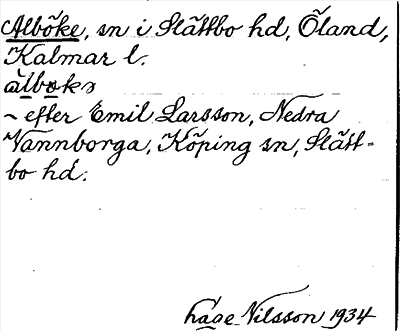 Alböke, sn i Slättbo hd, Öland,
Kalmar l.
àlbøkə
~ efter Emil Larsson, Nedra
Vannborga, Köping sn, Slätt-
bo hd.
Håge Nilsson 1934